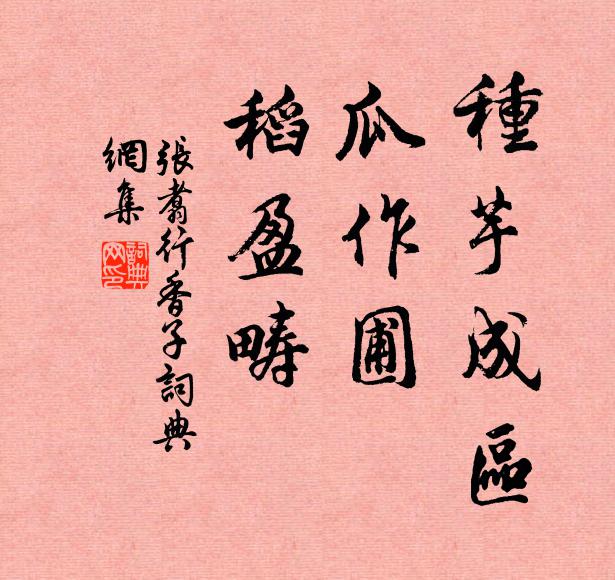 種芋成區
瓜作圃
稻盈疇
張翥行香子詞典
網集
詞典
网印